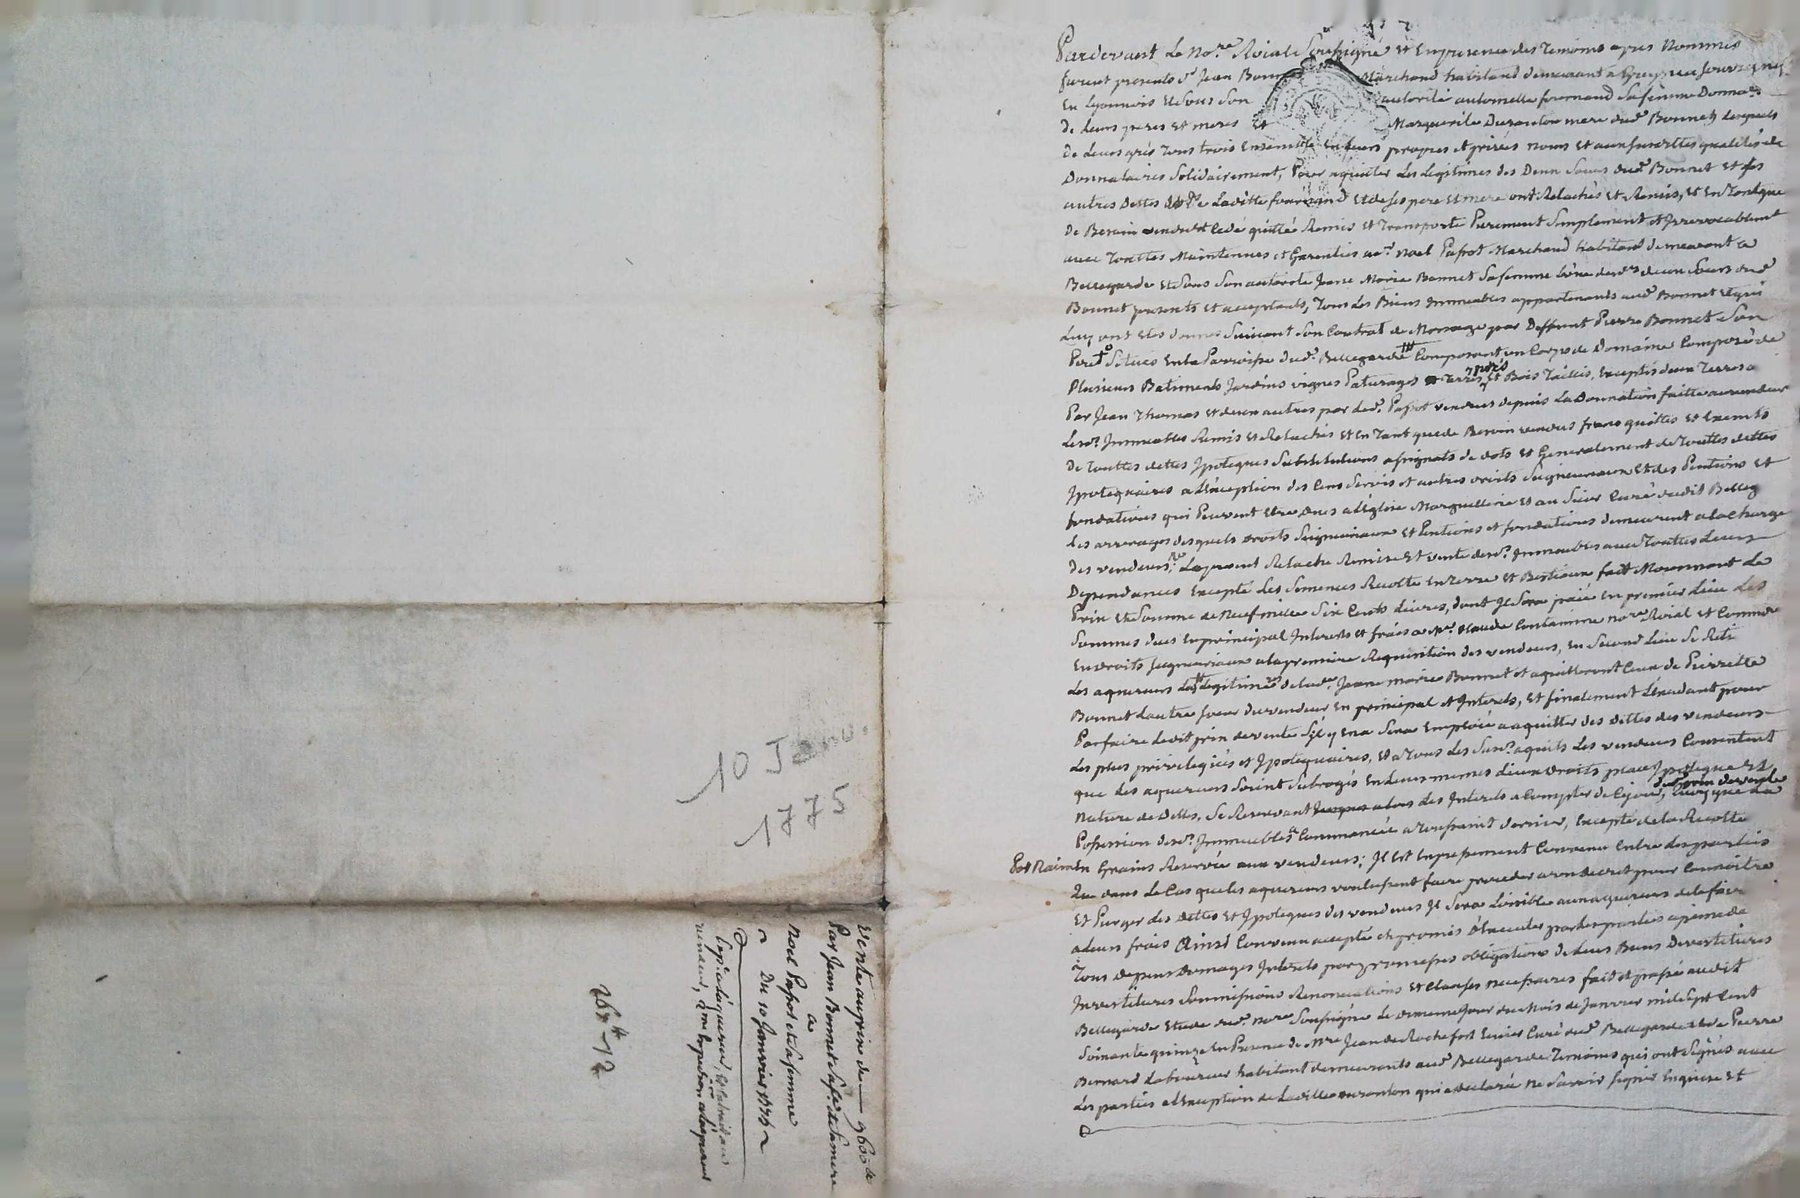 Pardevant Le No.re Roial Soussigné et En presence des Temoins apres Nommés
furent presents s.r Jean Bonnet Marchand habitand demeurant a
En Lyonnois et Sous Son autorité antoinette fournand Sa femme Donna.es
de Leurs peres et meres Et Marguerite mere dud. Bonnet Lesquels
de Leurs grés Tous trois Ensemble En Leurs propres et privés noms Et aux susdittes qualités de
Donnataires Solidairement, Pour aquiter Les Legitimes des Deux Soeurs dud. Bonnet et Les
autres Dettes de Laditte fournand Et de ses pere et mere ont Relachés et Remis, et En Tant que
de Besoin vendu et cedé quitté Remis et Transporté Purement Simplement et Irrevocablement
avec Touttes Maintenues et Garenties a s.r Noel Pafrot Marchand habitand demeurant a
Bellegarde et Sous Son autorité Jeane Marie Bonnet Sa femme L'une desd. deux Soeurs dud.
Bonnet presents et acceptants, Tous Les Biens Immeubles appartenants aud. Bonnet et qui
Luy ont Etés donnés Suivant Son Contrat de Mariage par Deffunt Pierre Bonnet Son
Pere Situés En la Parroisse dud. Bellegarde Composant un Corps de Domaine Composé de
Plusieurs Batiments Jardins vignes Paturages Terres prés Et Bois Taillis, Exceptés deux Terres
Par Jean Thomas et deux autres par led. Pafrot vendues depuis La Donnation faitte au vendeur
Lesd. Immeubles Remis et Relachés et En Tant que de Besoin vendus francs quittes et Exempts
de Touttes dettes Ipoteques Substitutions assignats de dots et Generalement de Touttes dettes
Ipotequaires a l'Exception des Cens Servis et autres droits Seigneuriaux Et des Pentions Et
fondations qui Peuvent Etre dues a L'Eglise Marguellerie et au Sieur Curé dudit Belleg.
Les arrerages desquels droits Seigneuriaux Et Pentions et fondations demeurent a la charge
des vendeurs; Le present Relache Remise et vente desd. Immeubles avec Touttes Leurs
Dependances Excepté Les Semences Recolte En Terre et Bestiaux fait Moyennant Le
Prix Et Somme de Neuf mille Six Cents Livres, dont Il Sera paié En premier Lieu Les
Sommes dues En principal Interets et frais a M.e Claude Contamine no.re Roial et Commis
En droits Seigneuriaux a la premiere Requisition des vendeurs, En Second Lieu Se
Les aquereurs La Legitime de Lad. Jeane marie Bonnet et aquitteront Celle de Pierrette
Bonnet L'autre Soeur du vendeur En principal et Interets, Et finalement L'Excedant pour
Parfaire Ledit prix de vente S'il y En a Sera Emploié a aquitter des dettes des vendeurs
Les plus privilegiés et Ipotequaires, Et a Tous Les Susd. aquits Les vendeurs Consentent
que Les aquereurs Soient Subrogés En Leurs memes Lieux droits place Ipoteque Et
Nature de Dettes, Se Reservant des Interets a Compter de Ce jour, dud. prix de vente
Possession desd. Immeubles Commencée a Toussaint dernier, Excepté de la Recolte
En Grains Reservée aux vendeurs; Il Est Expressement Convenu Entre Les parties
Que dans Le Cas que Les aquereurs voulussent faire proceder a un decret pour Connoitre
Et Purger Les dettes Et Ipoteques des vendeurs Il Sera Loisible aux aquereurs de Le faire
a Leurs frais Ainsi Convenu accepté et promis d'Executer par Les parties a peine de
Tous depens Domages Interets par Expresses obligations de Leurs Biens Devestitures
Investitures Soumissions Renonciations Et Clauses necessaires fait et passé audit
Bellegarde Etude dud. no.re Soussigné Le dixieme jour du Mois de Janvier mil Sept Cent
Soixante quinze En Presence de M.re Jean de Rochefort Curé dud. Bellegarde et de Pierre
Bernard Laboureur habitant demeurants aud. Bellegarde Temoins qui ont Signés avec
Les parties a l'Exception de Laditte qui a declaré ne Savoir signer Enquise Et
10 Janv.
1775
Vente au prix de 9600 #
Par Jean Bonnet Sa fe. et Sa mere
a
Noel Pafrot et Sa femme
Du 10 Janvier 1775